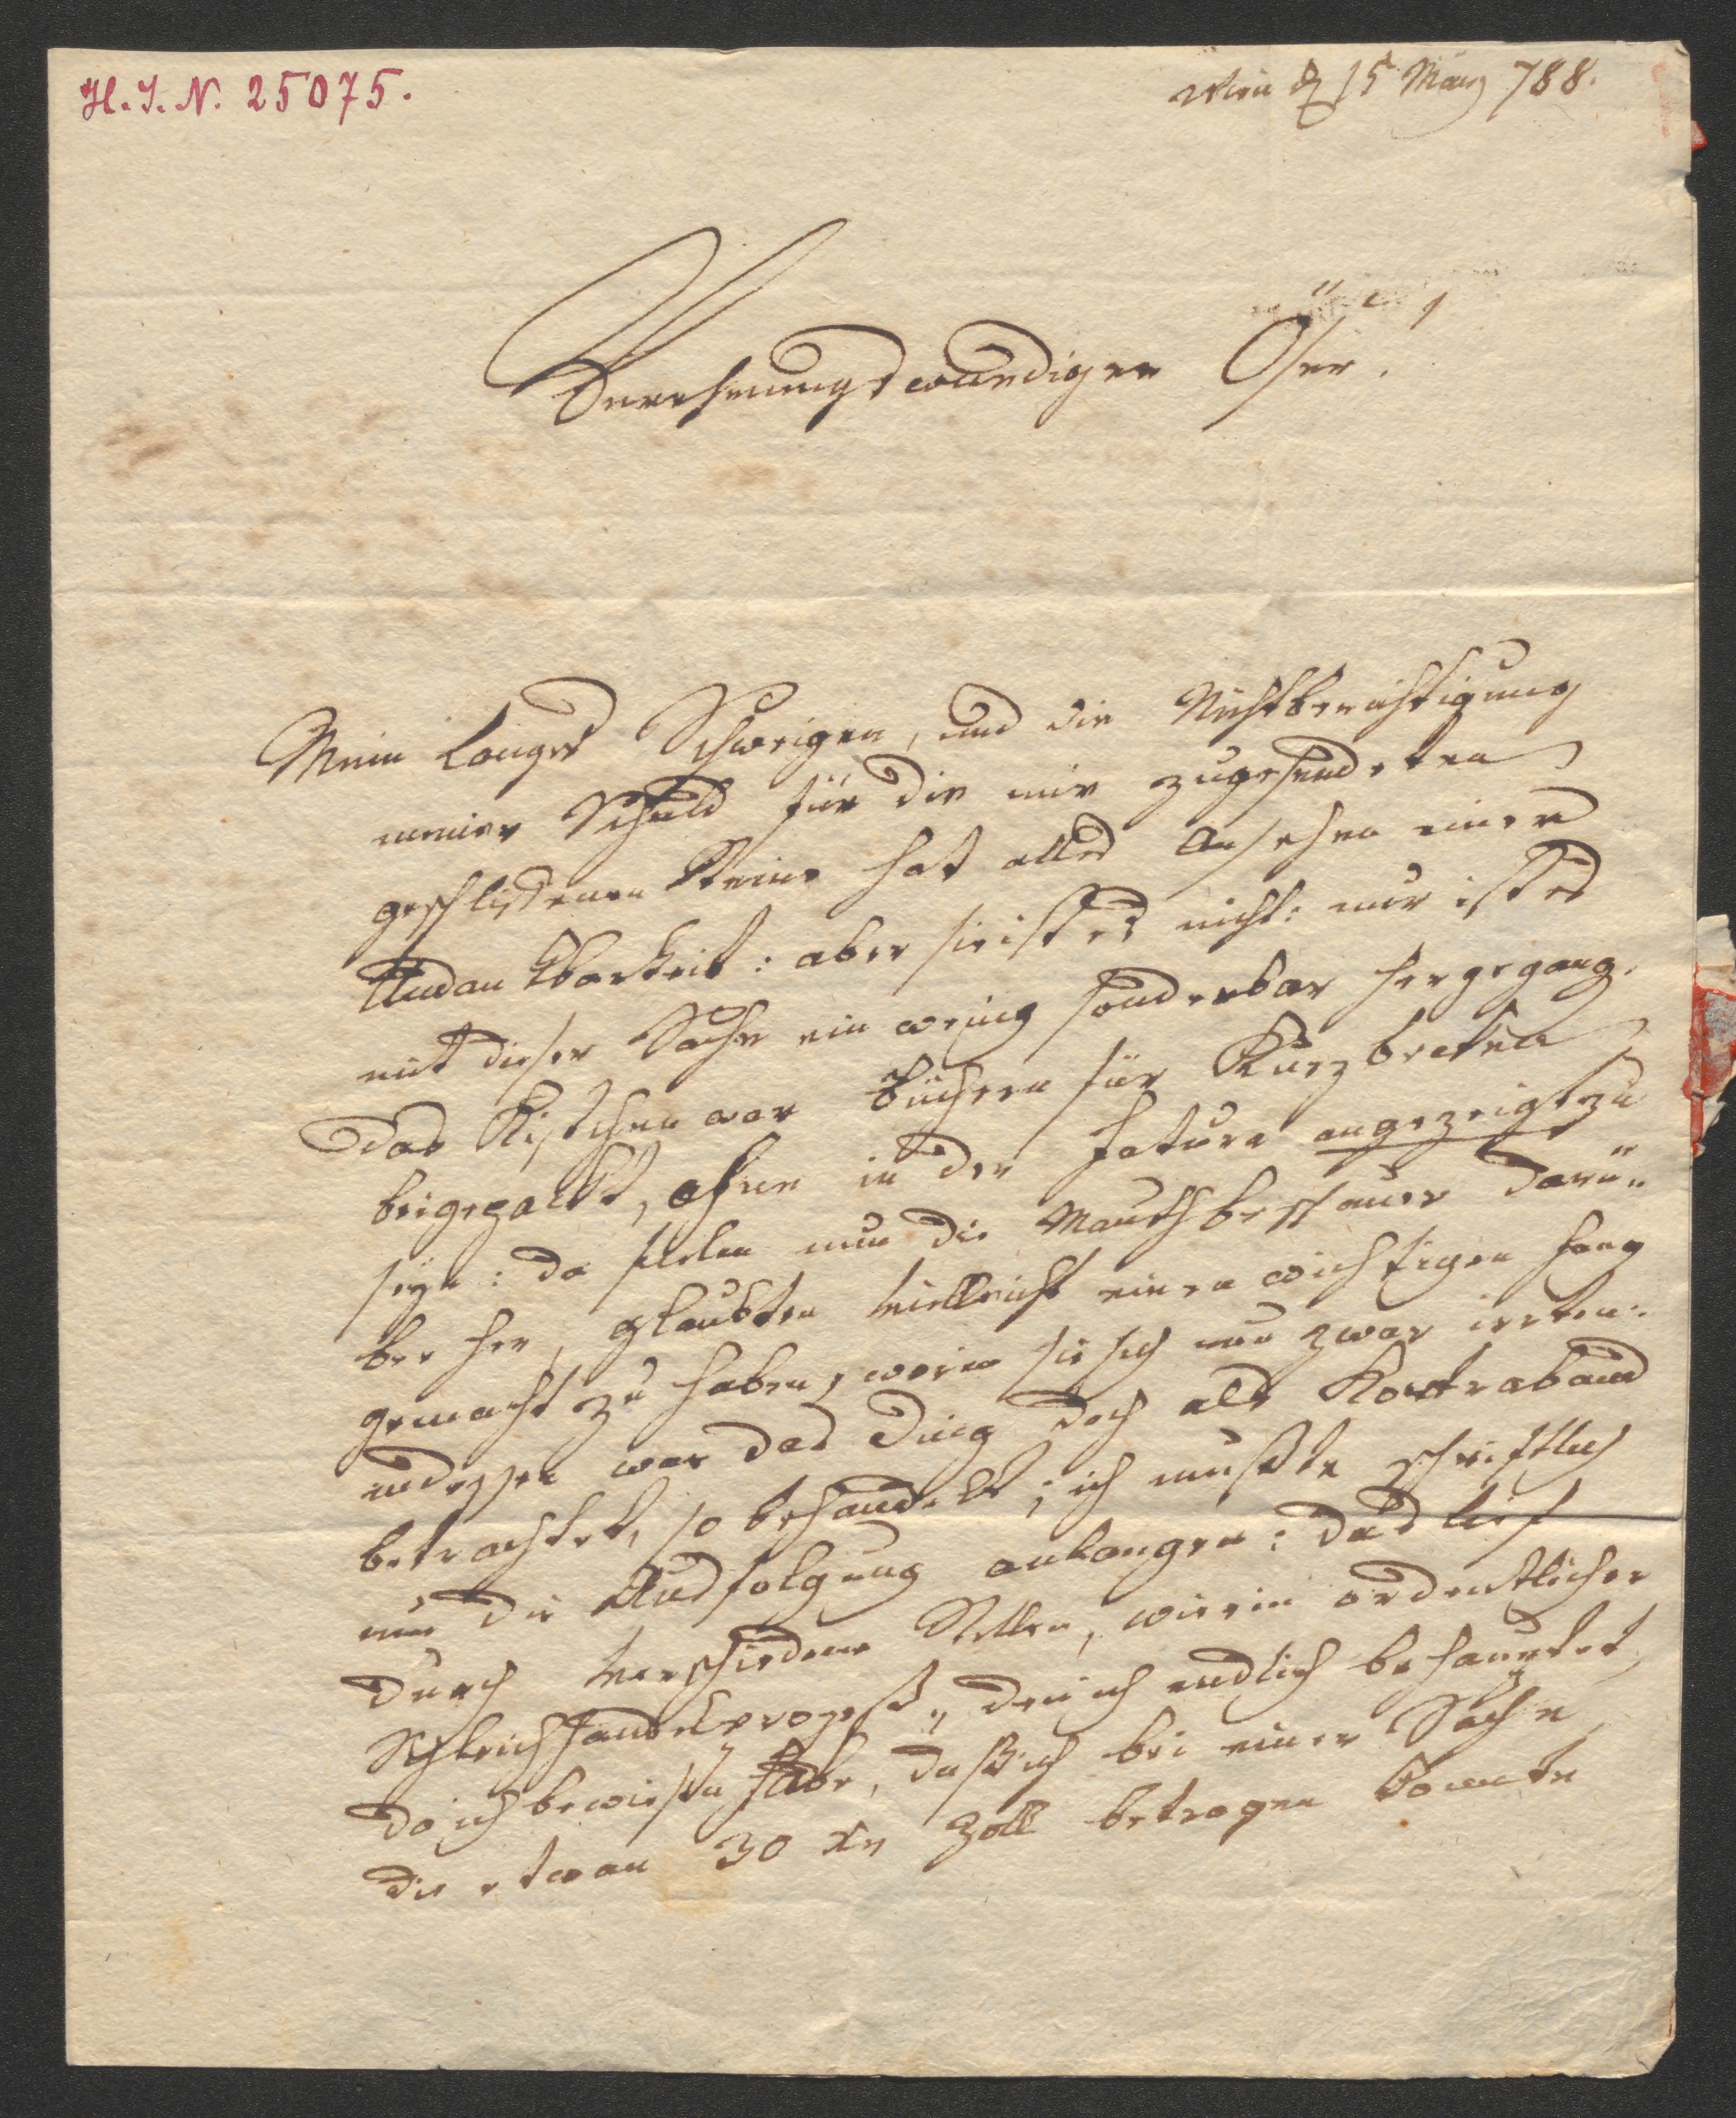 H. I. N. 25075.
Wien d 15t März 788.
Verehrungswürdiger Öser!
Mein langes Schweigen, und die Nichtberichtigung
meiner Schuld für die mir zugesendeten
geschlissenen Steine hat alles Ansehen einer
Undankbarkeit: aber sie ist es nicht: nur ist es
mit dieser Sache ein wenig sonderbar hergegang.
Das Kistchen war Büchern für Kurzbeken
beigepakt, ohne in der Fature angezeigt zu
seyn: da fielen nun die Mauthbeschauer darü„
ber her, glaubten vielleicht einen wichtigen Fang
gemacht zu haben, worin sie sich nun zwar irrten:
indessen war das Ding doch als Kontraband
betrachtet, so behandelt; ich mußte schriftlich
um die Ausfolgung anlangen: das lief
durch verschiedene Stellen, wie ein ordentlicher
Schleichhandelprozeß„ den ich endlich behauptet,
da ich bewiesen habe, daß ich bei einer Sache
die etwan 30 xr Zoll betragen konnte